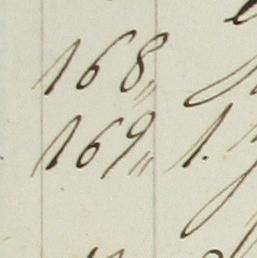 168,,
169,, 1.